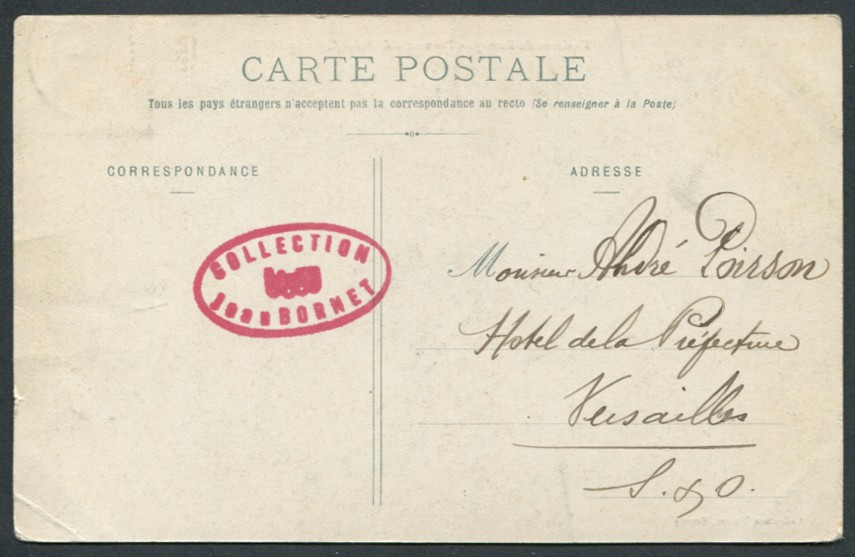 CARTE POSTALE
Tous les pays étrangers n'acceptent pas la correspondance au recto (Se renseigner à la Poste)
CORRESPONDANCE
ADRESSE
COLLECTION
Jean BORNET
Monsieur André Poirson
Hotel de la Préfecture
Versailles
S. & O.